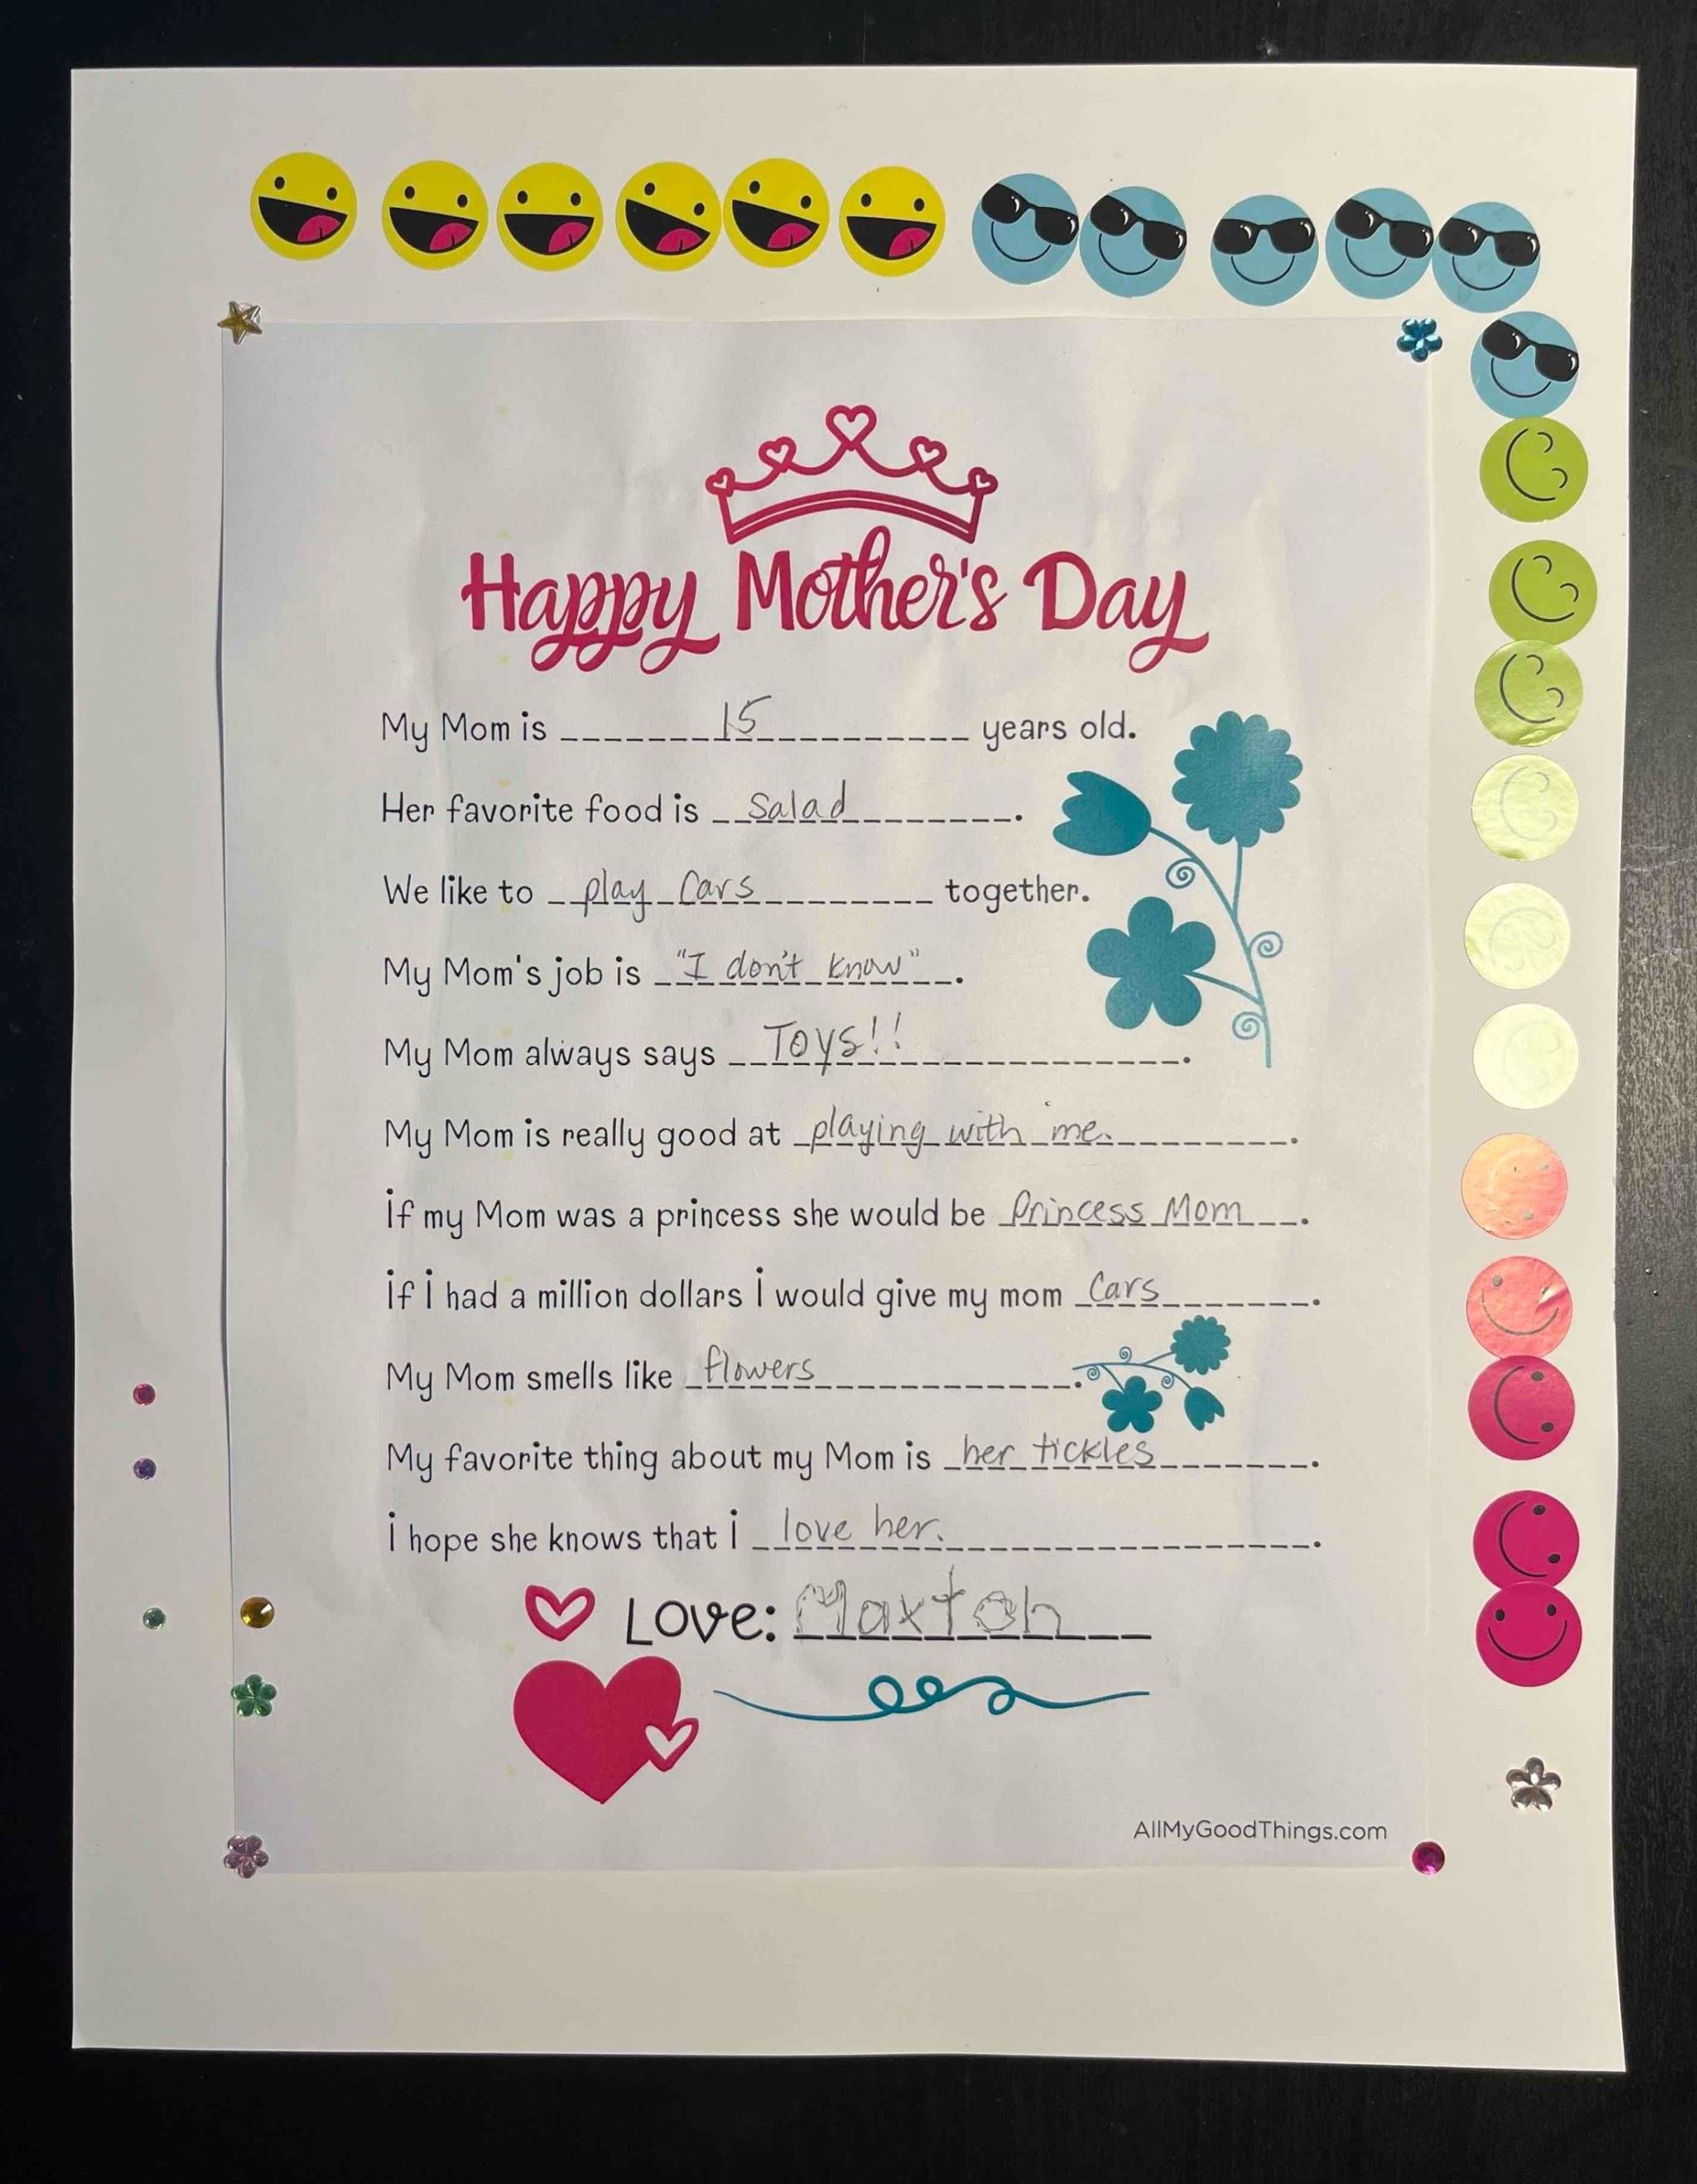 Happy Mother's Day
My Mom is 15 years old.
Her favorite food is salad.
We like to play cars together.
My Mom's job is "I don't know".
My Mom always says Toys!!.
My Mom is really good at playing with me..
if my Mom was a princess she would be Princess Mom.
if i had a million dollars i would give my mom Cars.
My Mom smells like flowers.
My favorite thing about my Mom is her tickles.
i hope she knows that i love her..
Love: Maxton
AllMyGoodThings.com